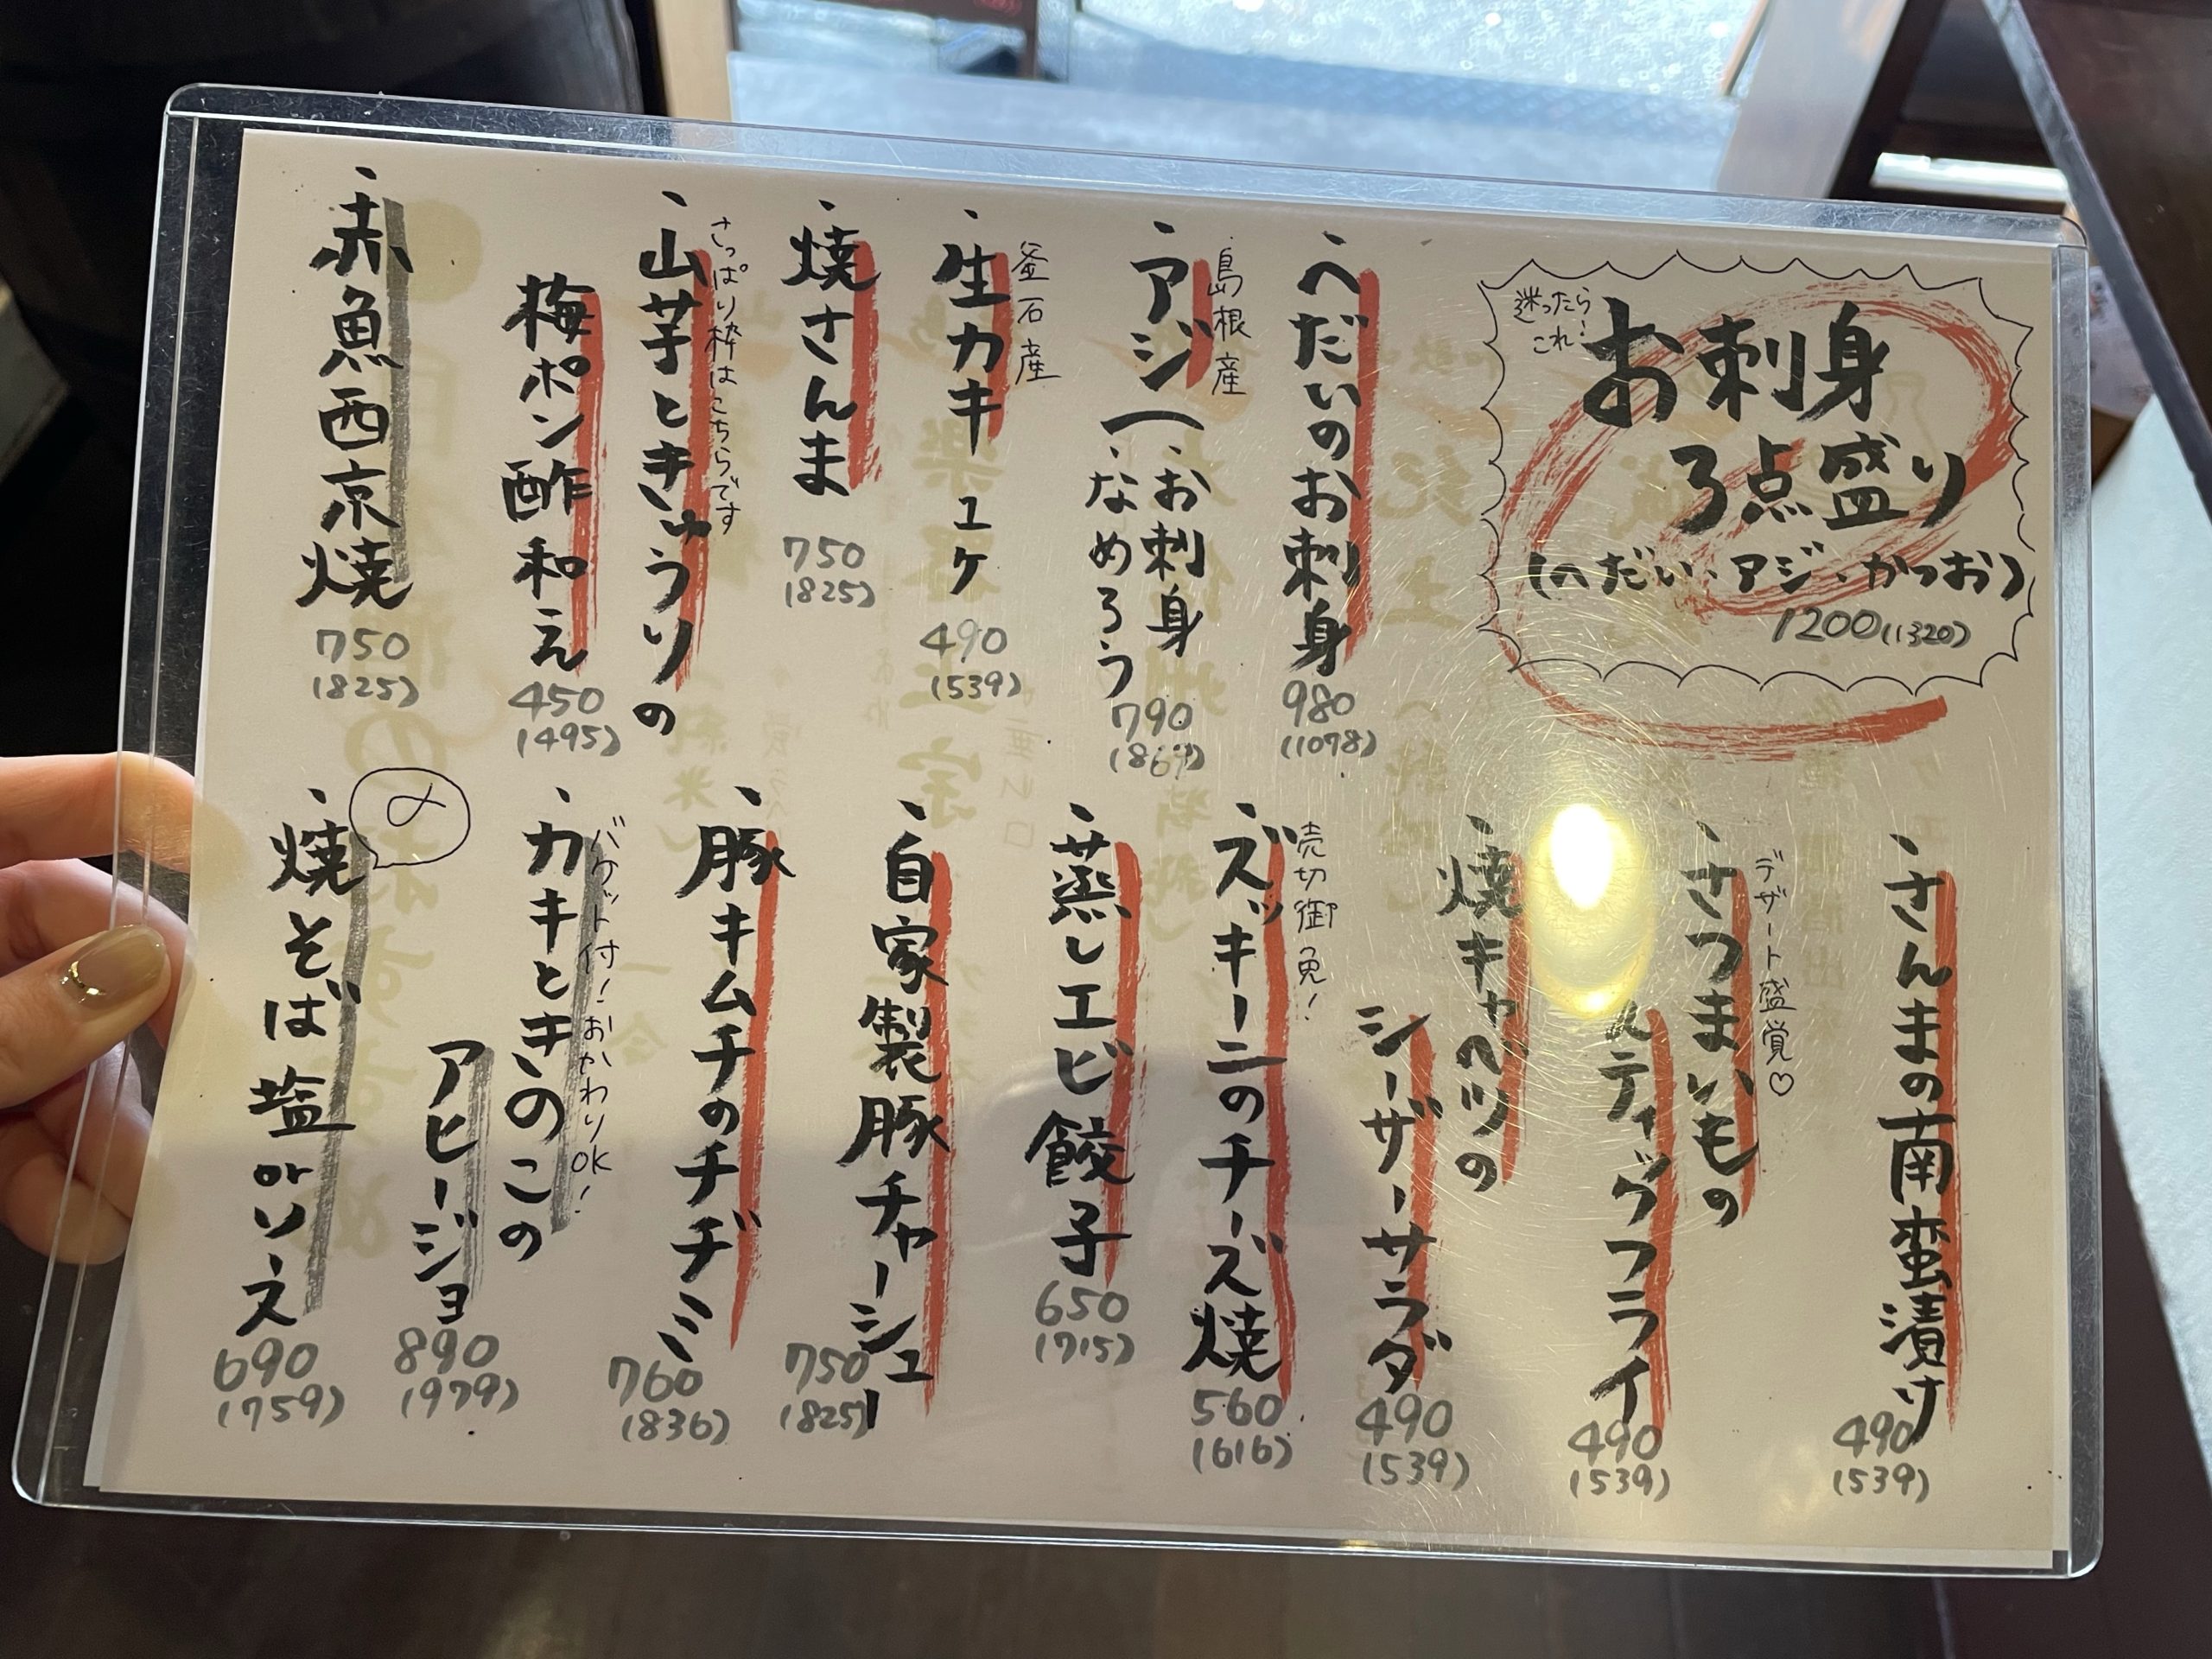 迷ったら
これ！
お刺身
3点盛り
(へだい、アジ、かつお)
1200(1320)
、へだいのお刺身
980
(1078)
島根産
、アジ(
、お刺身
、なめろう
790
(869)
釜石産
、生カキ 1ヶ
490
(539)
、焼さんま
750
(825)
さっぱり枠はこちらです
、山芋ときゅうりの
梅ポン酢和え
450
(495)
、赤魚西京焼
750
(825)
、さんまの南蛮漬け
490
(539)
デザート感覚♡
、さつまいもの
ルティックフライ
490
(539)
、焼キャベツの
シーザーサラダ
490
(539)
売切御免！
、ズッキーニのチーズ焼
560
(616)
、蒸しエビ餃子
650
(715)
、自家製豚チャーシュー
750
(825)
、豚キムチのチヂミ
760
(836)
バケット付！おかわりOK！
、カキときのこの
アヒージョ
890
(979)
〆
、焼そば 塩orソース
690
(759)